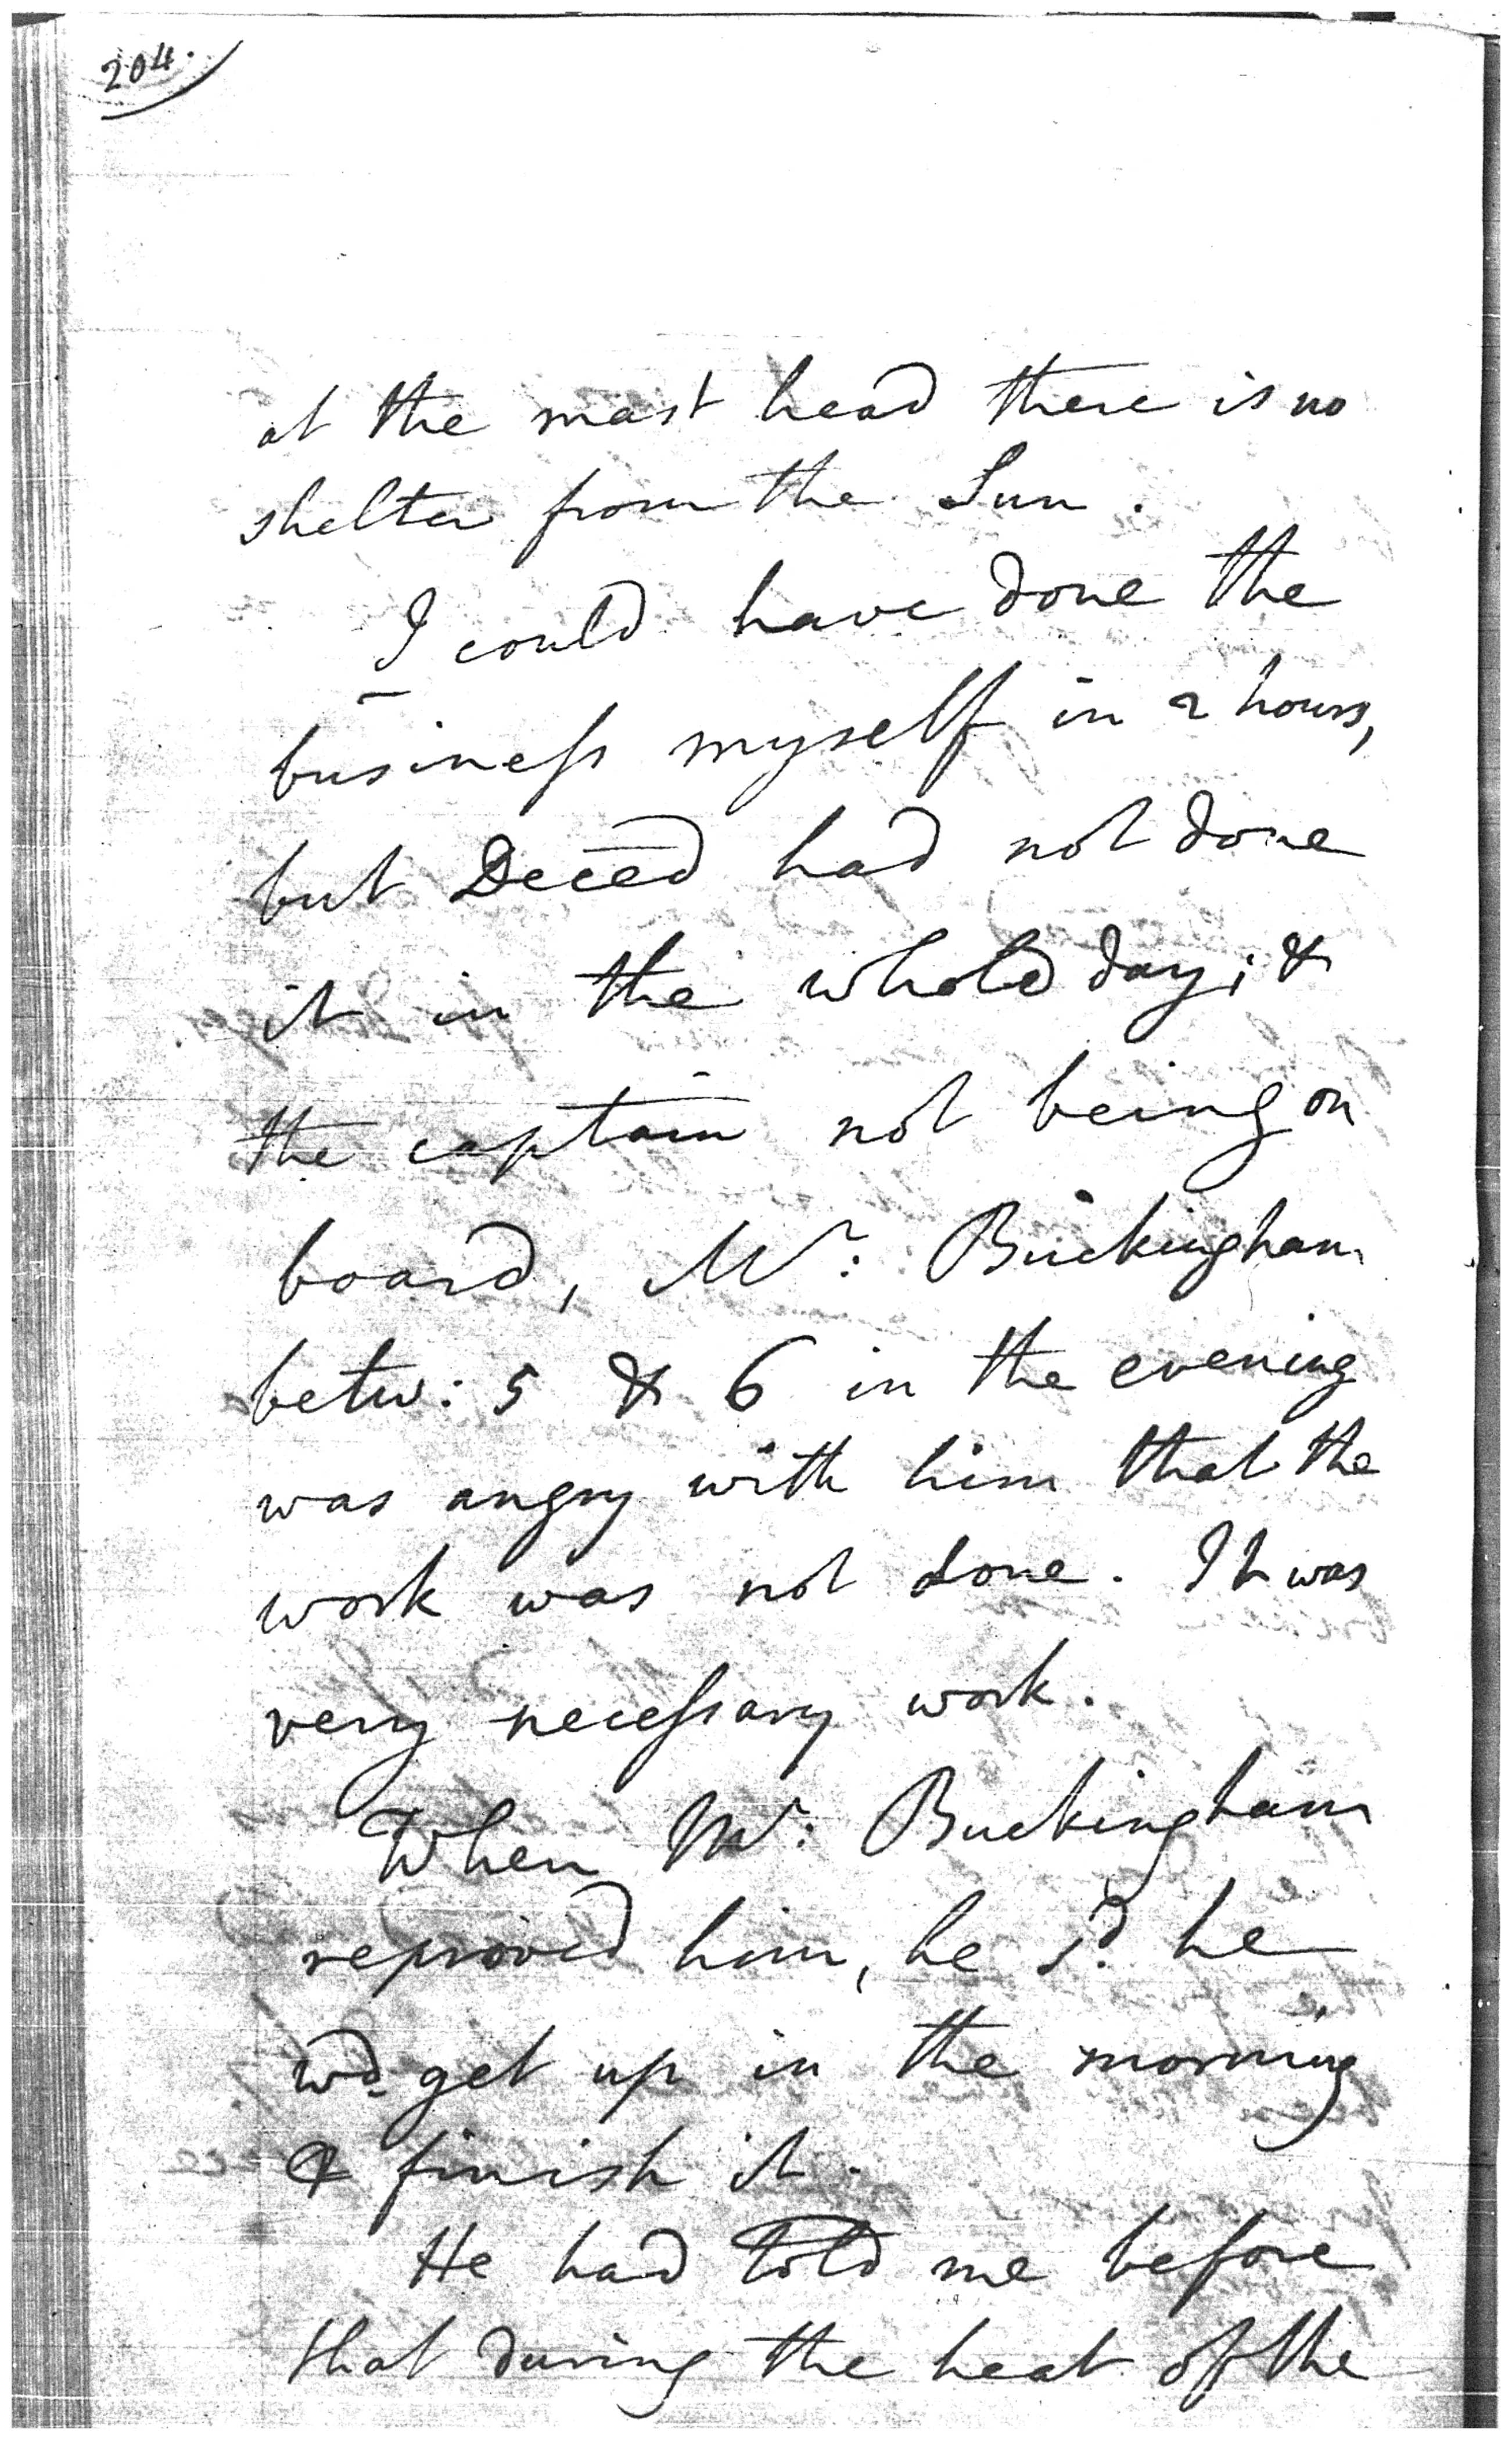 204.
at the mast head there is no
shelter from the Sun.
I could have done the
business myself in 2 hours,
but Deced had not done
it in the whole day; &
the captain not being on
board, Mr: Buckingham
betw: 5 & 6 in the evening
was angry with him that the
work was not done. It was
very necessary work.
When Mr: Buckingham
reproved him, he sd. he
wd. get up in the morning
& finish it.
He had told me before
that during the heat of the